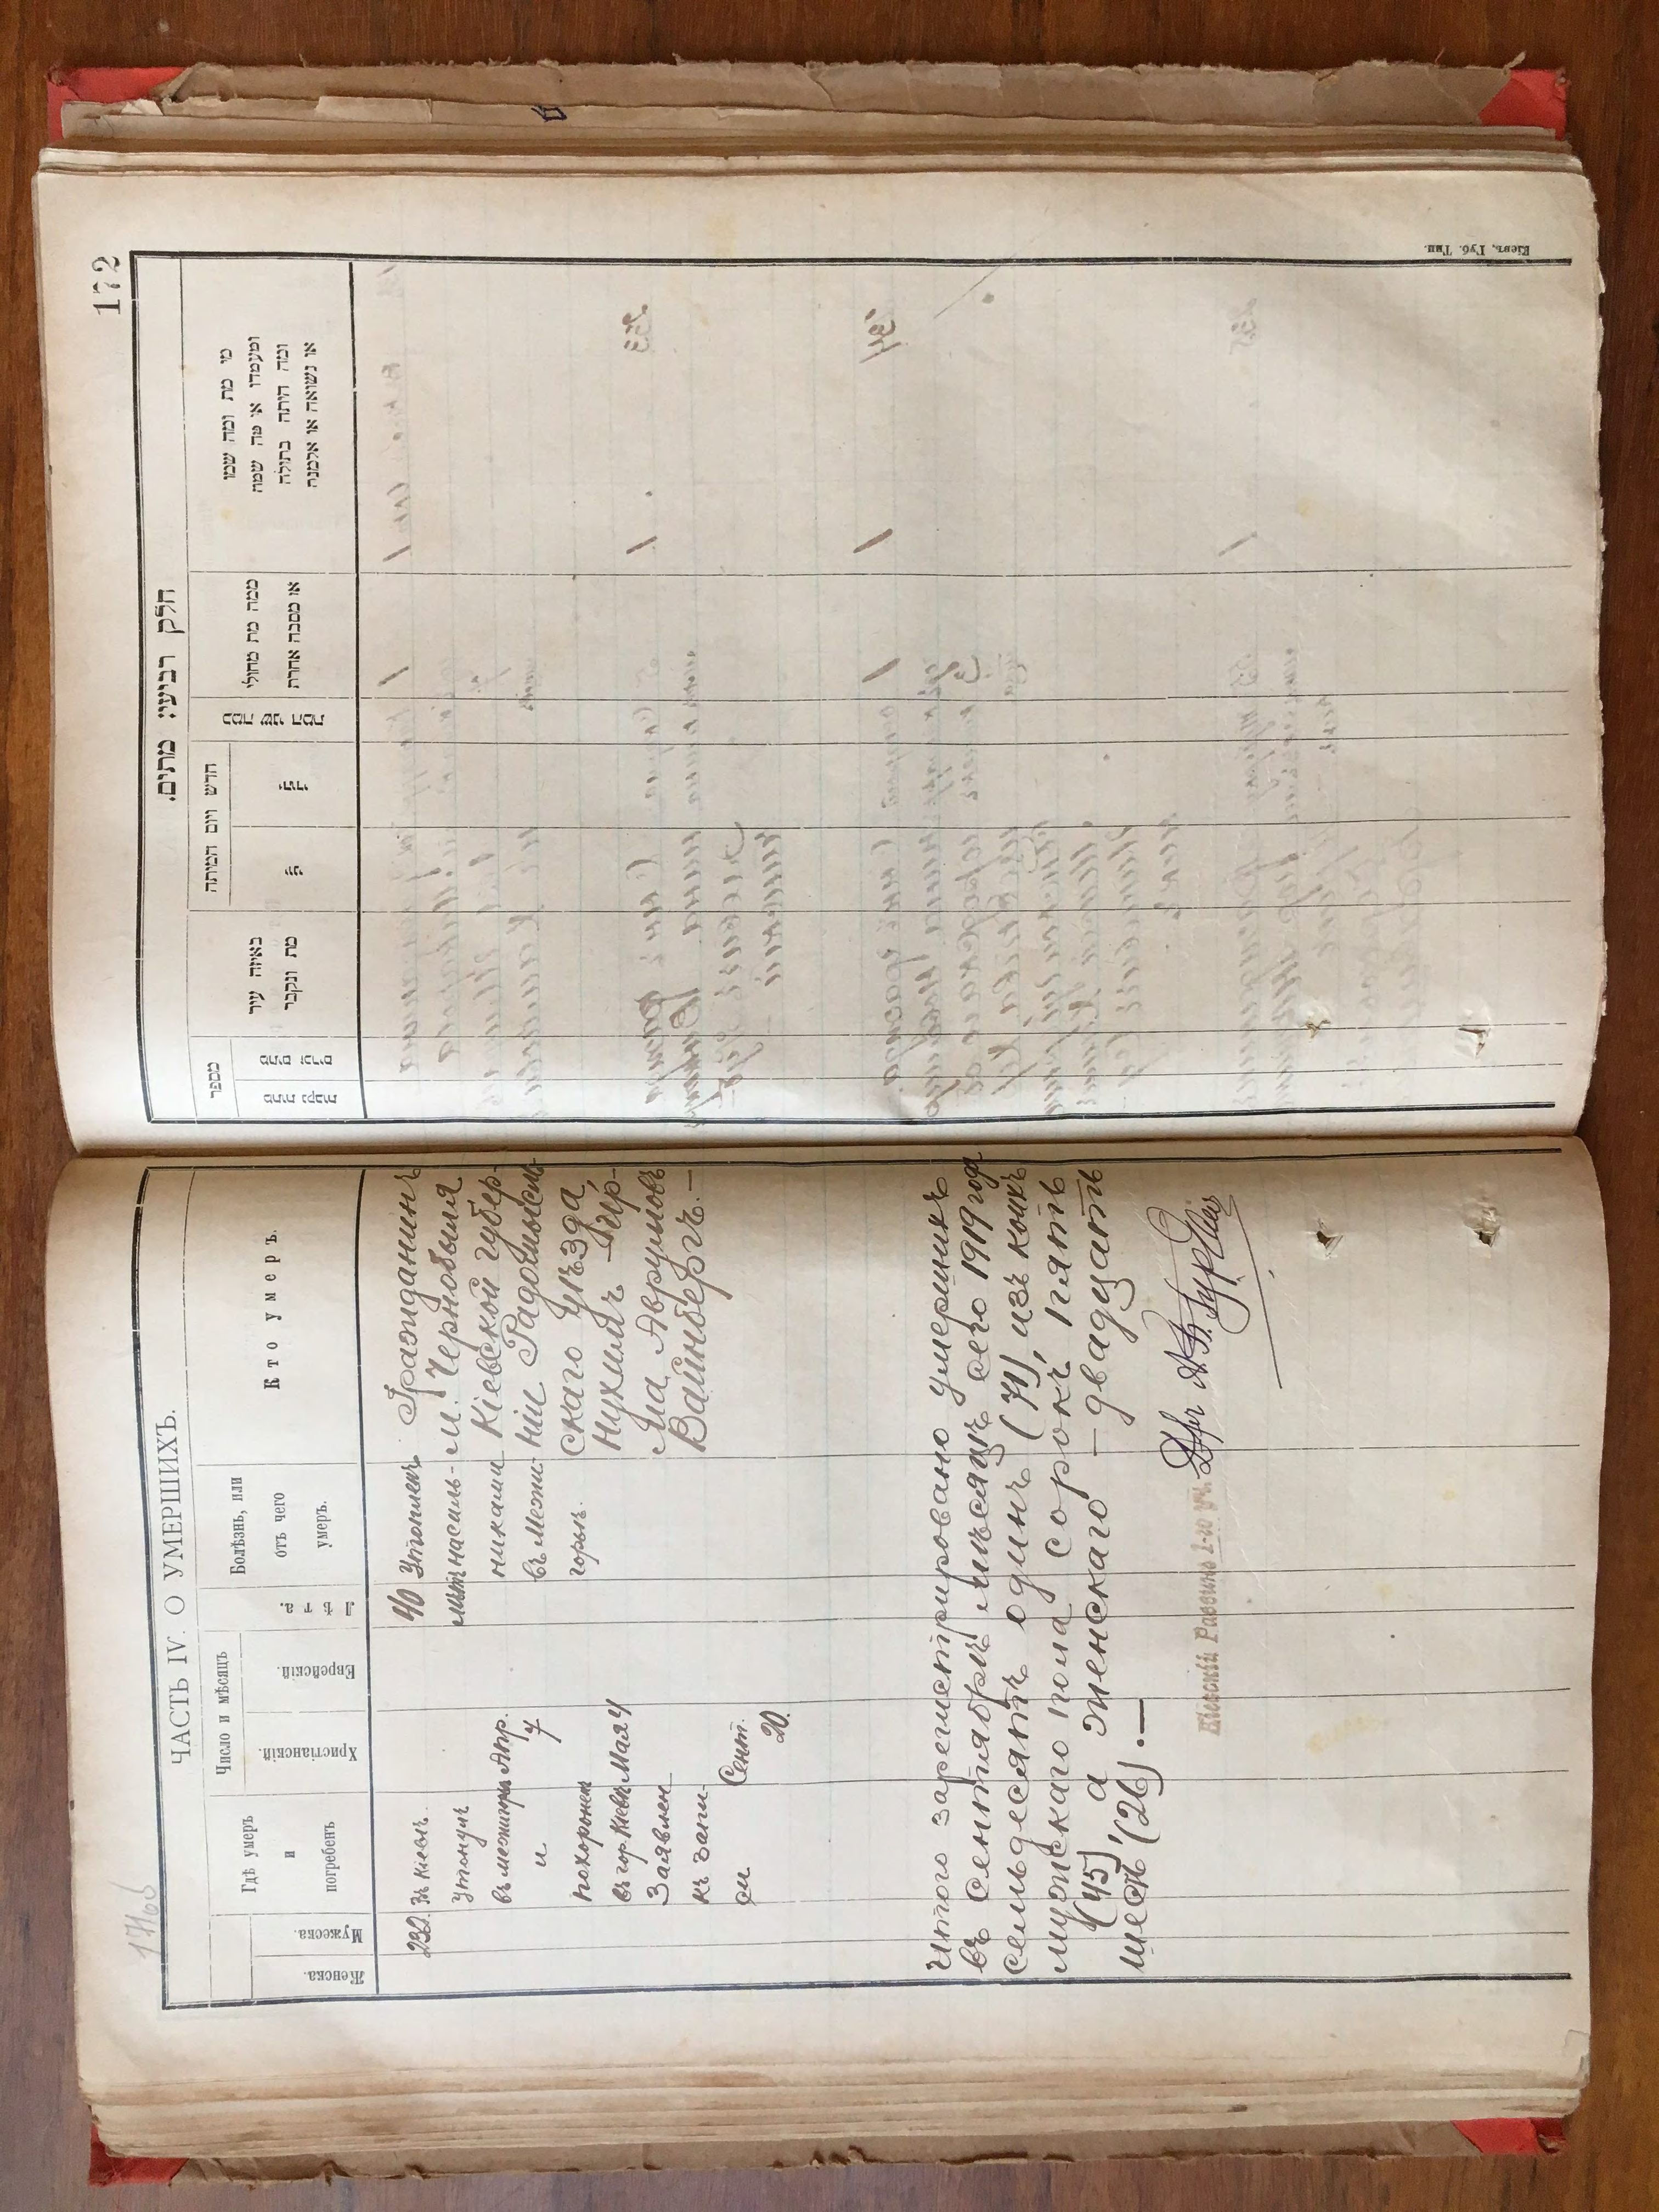 171об
ЧАСТЬ IV. О УМЕРШИХЪ.
Женска.
Мужеска.
Гдѣ умеръ
и
погребенъ
Число и мѣсяцъ
Христіанскій.
Еврейскій.
Лѣта.
Болѣзнь, или
отъ чего
умеръ.
Кто умеръ.
232.
Въ Кіевѣ.
Утонулъ
въ межигорьи
и
похороненъ
въ гор. Кіевѣ
Заявленъ
къ запи-
си
Апр.
7
Мая 4
Сент.
20.
40
лѣтъ
Утопленъ
насиль-
никами
въ Межи-
горьѣ.
Гражданинъ
м. Чернобыля
Кіевской губер-
ніи Радомысль-
скаго уѣзда,
Нухимъ-
Аврумовъ
Вайнбергъ.—
Итого зарегистрировано умершихъ
въ Сентябрѣ мѣсяцѣ сего 1919 года
семьдесятъ одинъ (71), изъ коихъ
мужскаго пола сорокъ пять
(45), а женскаго – двадцать
шесть (26).—
Кіевскій Раввинъ 1-го уч.
172
חלק רביעי: מתים.
מספר
מתות נקבות
מתים זכרים
באיזה עיר
מת ונקבר
חדש ויום המיתה
כמה שני המת
ממה מת מחולי
או מסבה אחרת
מי מת ומה שמו
ומעמדו או מה שמה
ומה היתה בתולה
או נשואה או אלמנה
Кіевъ, Губ. Тип.